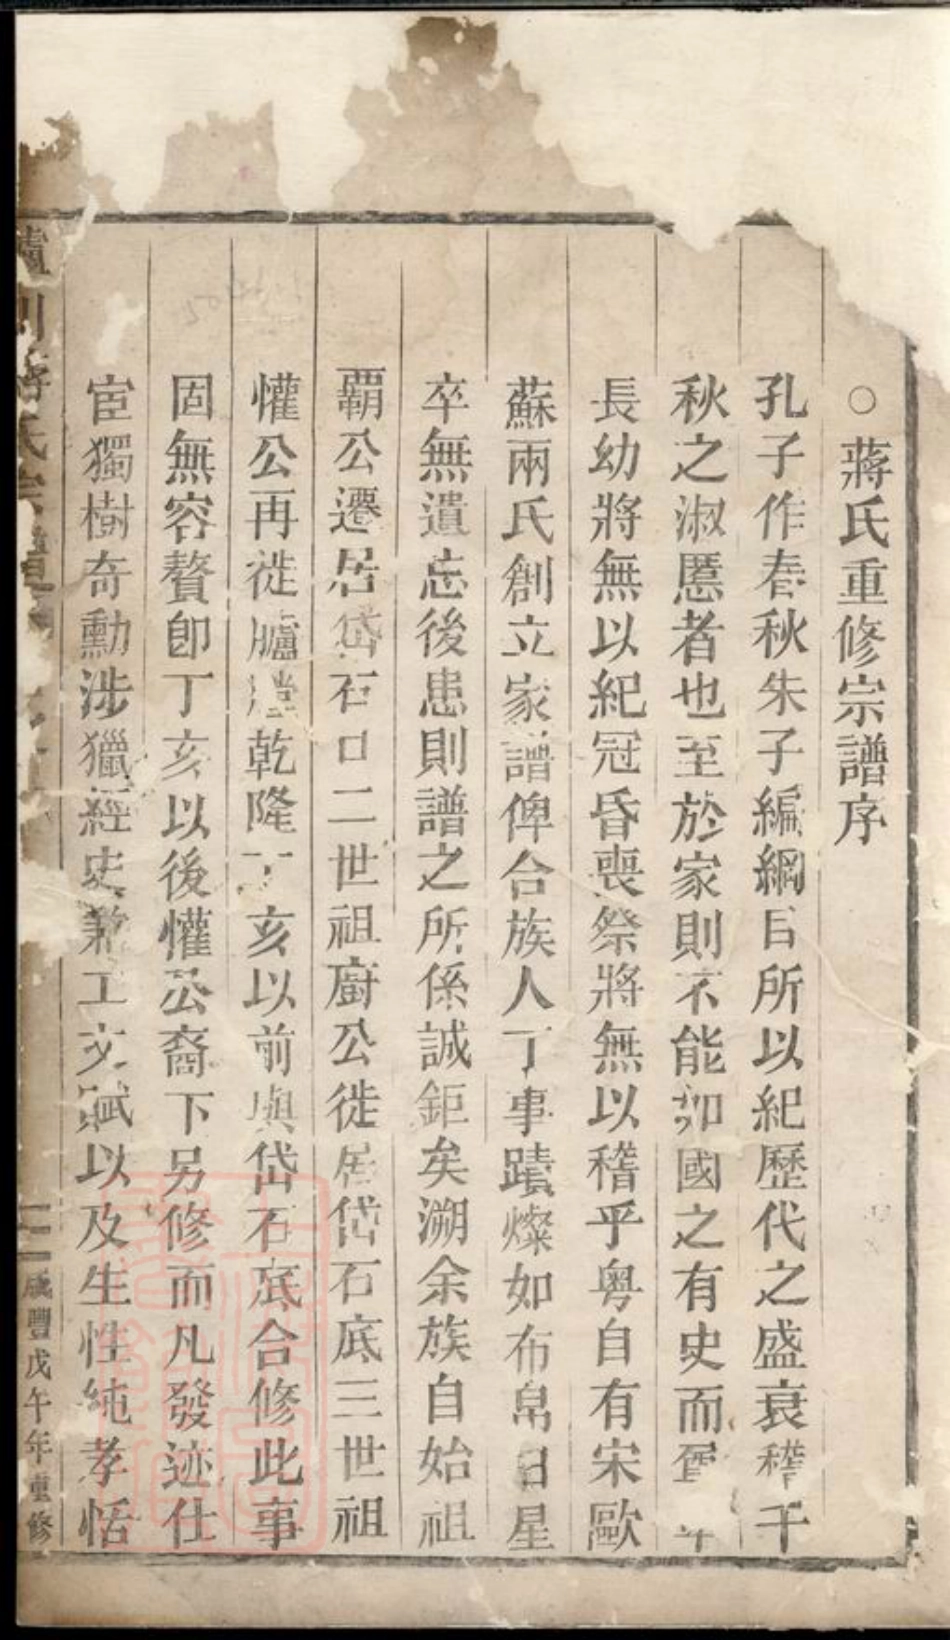 ○蔣氏重修宗譜序
孔子作春秋朱子編綱目所以紀歷代之盛衰稽千
秋之淑慝者也至於家則不能如國之有史而尊卑
長幼將無以紀冠昏喪祭將無以稽乎粤自有宋歐
蘇兩氏創立家譜俾合族人丁事蹟燦如布帛日星
卒無遺忘後患則譜之所係誠鉅矣溯余族自始祖
覇公遷居岱石口二世祖廚公徙居岱石底三世祖
懽公再徙臚澧乾隆丁亥以前與岱石底合修此事
固無容贅卽丁亥以後懽公裔下另修而凡發迹仕
宦獨樹奇勳涉獵經史兼工文賦以及生性純孝恬
川蔣氏宗譜
二
咸豐戊午年重修